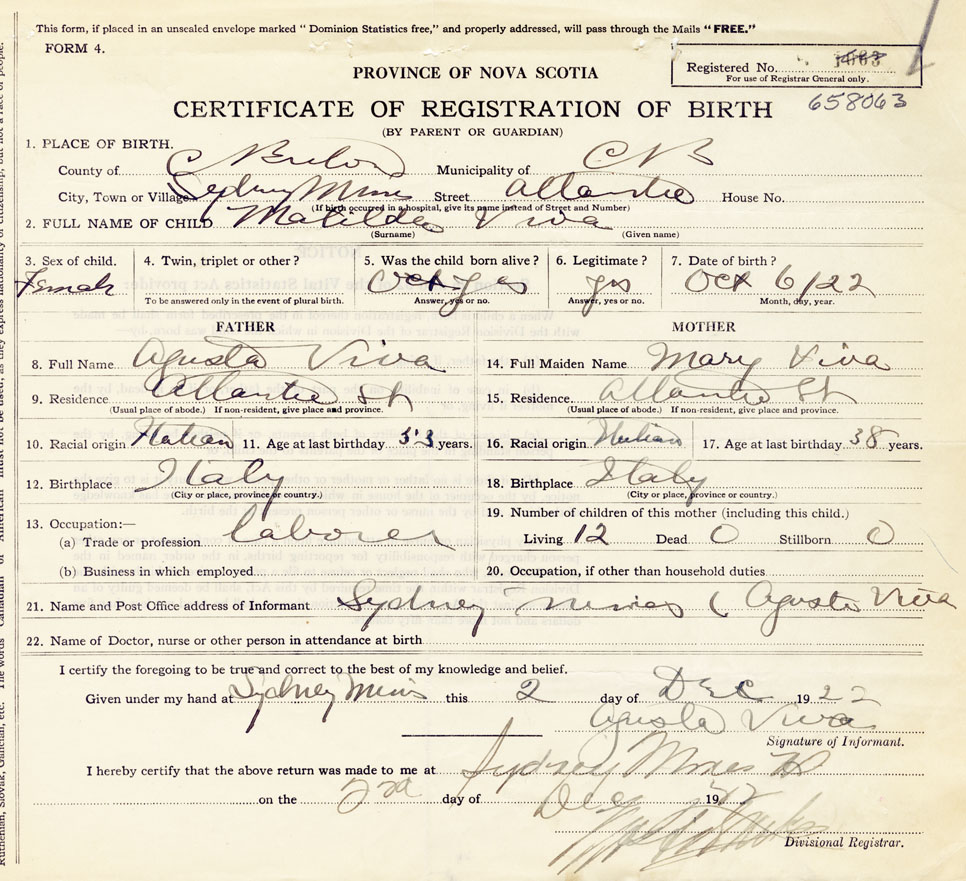 This form, if placed in an unsealed envelope marked "Dominion Statistics free," and properly addressed, will pass through the Mails "FREE."
FORM 4.
PROVINCE OF NOVA SCOTIA
Registered No.
For use of Registrar General only.
CERTIFICATE OF REGISTRATION OF BIRTH
658063
(BY PARENT OR GUARDIAN)
1. PLACE OF BIRTH.
County of C Breton Municipality of C B
City, Town or Village Sydney Mines Street Atlantic House No.
(If birth occurred in a hospital, give its name instead of Street and Number)
2. FULL NAME OF CHILD Matilda Viva
(Surname) (Given name)
3. Sex of child. 4. Twin, triplet or other? 5. Was the child born alive? 6. Legitimate? 7. Date of birth?
Female Oct yes yes Oct 6/22
To be answered only in the event of plural birth. Answer, yes or no. Answer, yes or no. Month, day, year.
FATHER MOTHER
8. Full Name Agusto Viva 14. Full Maiden Name Mary Viva
9. Residence Atlantic St 15. Residence Atlantic St
(Usual place of abode.) If non-resident, give place and province. (Usual place of abode.) If non-resident, give place and province.
10. Racial origin Italian 11. Age at last birthday 53 years. 16. Racial origin Italian 17. Age at last birthday 38 years.
12. Birthplace Italy 18. Birthplace Italy
(City or place, province or country.) (City or place, province or country.)
13. Occupation:— 19. Number of children of this mother (including this child.)
(a) Trade or profession laborer Living 12 Dead 0 Stillborn 0
(b) Business in which employed 20. Occupation, if other than household duties
21. Name and Post Office address of Informant Sydney mines ( Agusto Viva
22. Name of Doctor, nurse or other person in attendance at birth
I certify the foregoing to be true and correct to the best of my knowledge and belief.
Given under my hand at Sydney Mines this 2 day of Dec 1922
Agusto Viva
Signature of Informant.
I hereby certify that the above return was made to me at Sydney Mines
on the 2nd day of Dec 1922
Divisional Registrar.